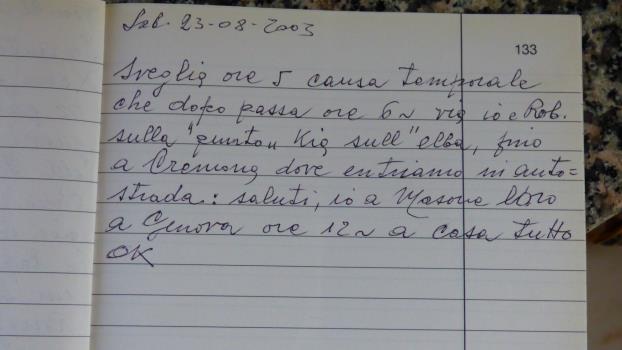 Sab. 23-08-2003
133
Sveglia ore 5 causa temporale
che dopo passa ore 6~ via io e Rob.
sulla "punto" Kia sull'"elba, fino
a Cremona dove entriamo in auto=
strada: saluti, io a Masone
a Genova ore 12~ a casa tutto
OK